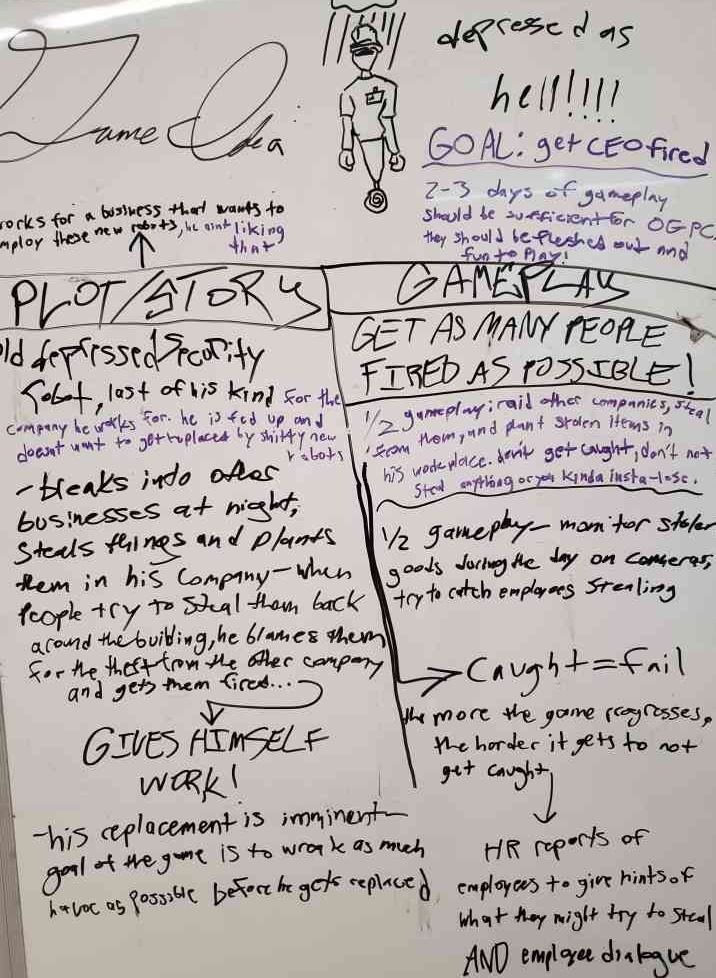 Game Idea
depressed as
hell!!!!
GOAL: get CEO fired
2-3 days of gameplay
should be sufficient for OGPC,
they should be fleshed out and
fun to play!
works for a business that wants to
mploy these new robots, he aint liking
that
PLOT/STORY
ld depressed Security
robot, last of his kind for the
company he works for. he is fed up and
doesnt want to get replaced by shitty new
robots
-breaks into other
businesses at night,
steals things and plants
them in his company-when
people try to steal them back
around the building, he blames them
for the theft from the other company
and gets them fired...
GIVES HIMSELF
WORK!
-his replacement is imminent-
goal of the game is to wreak as much
havoc as possible before he gets replaced
GAMEPLAY
GET AS MANY PEOPLE
FIRED AS POSSIBLE!
1/2 gameplay: raid other companies, steal
from them, and plant stolen items in
his workplace. don't get caught, don't not
steal anything or you kinda insta-lose.
1/2 gameplay- monitor stolen
goods during the day on cameras,
try to catch employees stealing
Caught = fail
the more the game progresses,
the harder it gets to not
get caught
HR reports of
employees to give hints of
what they might try to steal
AND employee dialogue